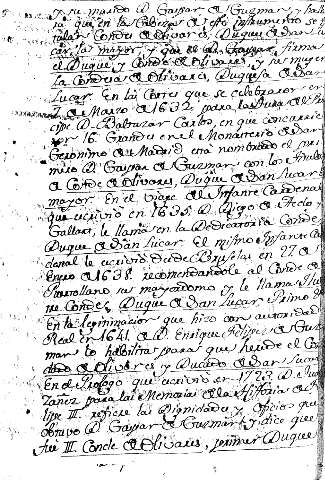 y su marido D. Gaspar de Guzman, y halla
ria que en la Cabeza de este instrumento se ti
tulan Condes de Olivares, Duques de San Lu
car la mayor, y que el D. Gaspar firma
el Duque y Conde de Olivares, y su muger
La Condesa de Olivares, Duquesa de San
Lucar. En las Cortes que se celebraron en
de Marzo de 1632 para la Jura del Prin
cipe D. Baltazar Carlos, en que concurrie
ron 16 Grandes en el Monasterio de San
Geronimo de Madrid está nombrado el pri
mero D. Gaspar de Guzman con los titulos
de Conde de Olivares, Duque de San Lucar la
mayor. En el viage del Infante Cardenal
que escrivió en 1635 D. Diego de Aedo y
Gallart, le llama en la Dedicatoria Conde
Duque de San Lucar. El mismo Infante Car
denal le escrivió desde Bruselas en 27 de
Enero de 1638 recomendandole al Conde de
Puertollano su mayordomo y le llama Ilus
mo Conde, Duque de San Lucar Primo
En la legitimacion que hizo con autoridad
Real en 1641 de D. Enrique Felipez de Guz
man lo habilita para que herede el Con
dado de Olivares y Ducado de San Lucar
En el Prologo que escrivió en 1723 D.
Yañez para las Memorias de la Historia de Fe
lipe III, refiere las Dignidades y Oficios que
obtuvo D. Gaspar de Guzman, y dice que
fue III Conde de Olivares, primer Duque